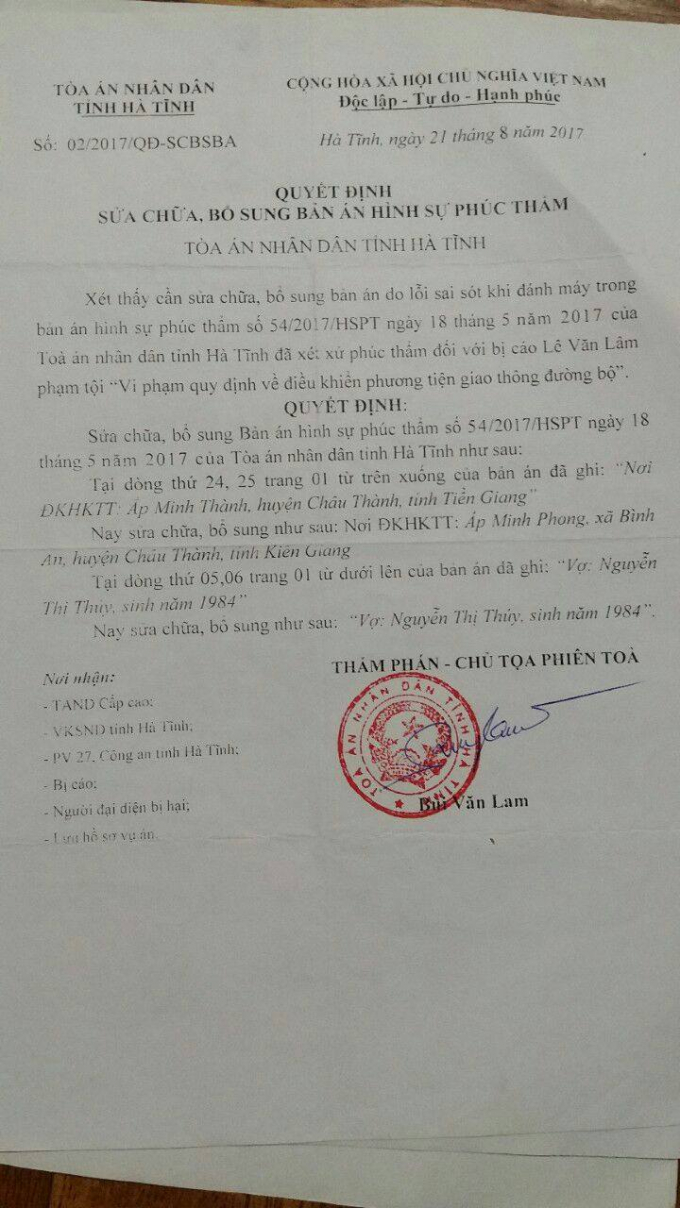 TÒA ÁN NHÂN DÂN
TỈNH HÀ TĨNH
Số: 02/2017/QĐ-SCBSBA
CỘNG HÒA XÃ HỘI CHỦ NGHĨA VIỆT NAM
Độc lập - Tự do - Hạnh phúc
Hà Tĩnh, ngày 21 tháng 8 năm 2017
QUYẾT ĐỊNH
SỬA CHỮA, BỔ SUNG BẢN ÁN HÌNH SỰ PHÚC THẨM
TÒA ÁN NHÂN DÂN TỈNH HÀ TĨNH
Xét thấy cần sửa chữa, bổ sung bản án do lỗi sai sót khi đánh máy trong
bản án hình sự phúc thẩm số 54/2017/HSPT ngày 18 tháng 5 năm 2017 của
Toà án nhân dân tỉnh Hà Tĩnh đã xét xử phúc thẩm đối với bị cáo Lê Văn Lâm
phạm tội “Vi phạm quy định về điều khiển phương tiện giao thông đường bộ”.
QUYẾT ĐỊNH:
Sửa chữa, bổ sung Bản án hình sự phúc thẩm số 54/2017/HSPT ngày 18
tháng 5 năm 2017 của Tòa án nhân dân tỉnh Hà Tĩnh như sau:
Tại dòng thứ 24, 25 trang 01 từ trên xuống của bản án đã ghi: “Nơi
ĐKHKTT: Ấp Minh Thành, huyện Châu Thành, tỉnh Tiền Giang”
Nay sửa chữa, bổ sung như sau: Nơi ĐKHKTT: Ấp Minh Phong, xã Bình
An, huyện Châu Thành, tỉnh Kiên Giang
Tại dòng thứ 05,06 trang 01 từ dưới lên của bản án đã ghi: “Vợ: Nguyễn
Thị Thủy, sinh năm 1984”
Nay sửa chữa, bổ sung như sau: “Vợ: Nguyễn Thị Thúy, sinh năm 1984”.
THẨM PHÁN - CHỦ TỌA PHIÊN TOÀ
Nơi nhận:
- TAND Cấp cao;
- VKSND tỉnh Hà Tĩnh;
- PV 27, Công an tỉnh Hà Tĩnh;
- Bị cáo;
- Người đại diện bị hại;
- Lưu hồ sơ vụ án.
TOÀ ÁN NHÂN DÂN TỈNH HÀ TĨNH
Bùi Văn Lam